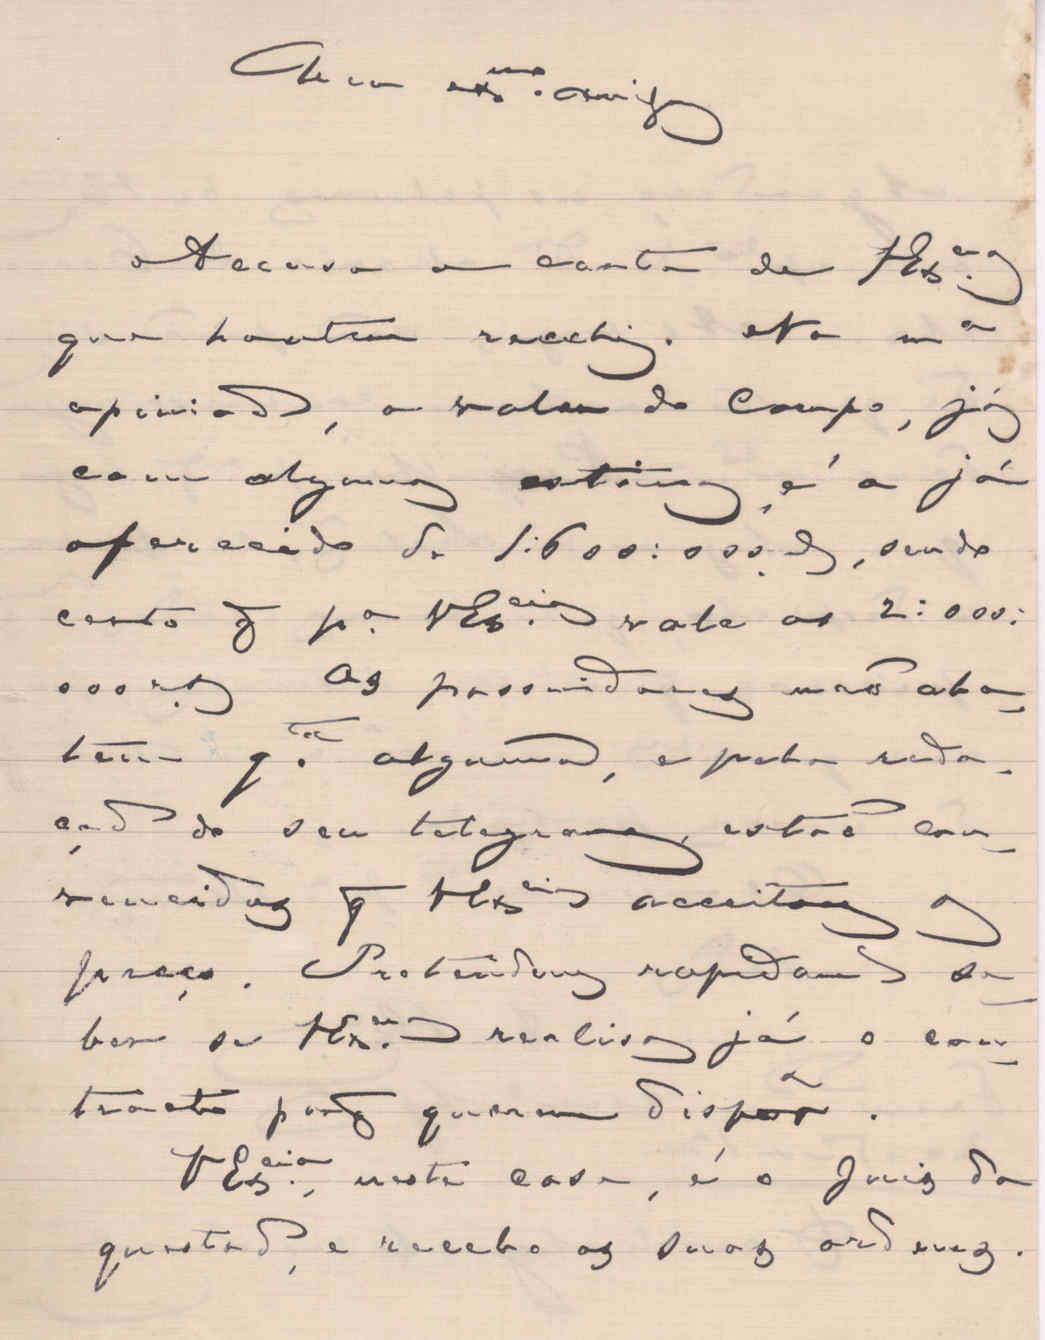 Meu ex.mo amigo
Accuso a carta de V Ex.cia
que hontem recebi. Na m.a
opinião, o valor do Campo, já
com algumas estimas, é o já
oferecido de 1:600:000 rs, sendo
certo q p.a V Ex.cia vale os 2:000:
000 rs. Os possuidores não aba-
tem q.ta alguma, e pela reda-
ção do seu telegrama, estão con-
vencidos q V Ex.cia acceitou o
preço. Pretendem rapidam.te sa-
ber se V Ex.cia realisa já o con-
tracto porq querem dispôr.
V Ex.cia, neste caso, é o Juiz da
questão, e recebo as suas ordens.